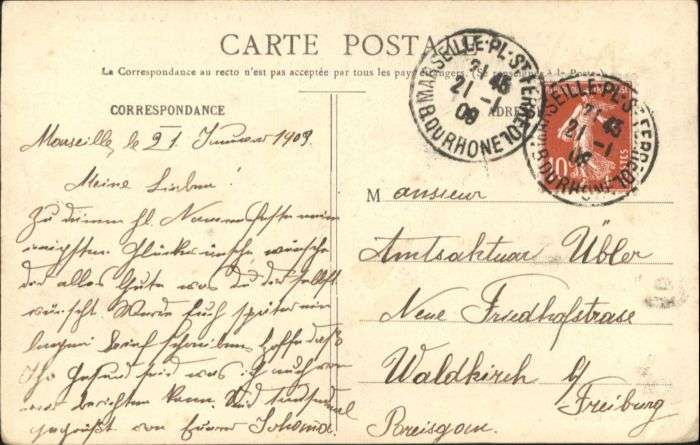 CARTE POSTALE
La Correspondance au recto n'est pas acceptée par tous les pays étrangers. (Se renseigner à la Poste)
CORRESPONDANCE
ADRESSE
MARSEILLE-PL. ST FERREOL
21 45
21 -1
09
B. DU RHONE
MARSEILLE-PL. ST FERREOL
21 45
21 -1
09
B. DU RHONE
10
POSTES
Marseille, le 21. Januar 1909.
Meine Lieben!
Zu deinem hl. Namensfeste meine
Glückwünsche, wünsche
dir alles Gute was du dir selbst
wünscht. Werde Euch später ein
langen Brief schreiben, hoffe daß
Ihr gesund seid was ich auch von
mir berichten kann. Seid tausendmal
gegrüßt von Eurer Johanna.
Monsieur
Amtsaktuar Übler
Neue Friedhofstrase
Waldkirch b/
Freiburg
Breisgau.